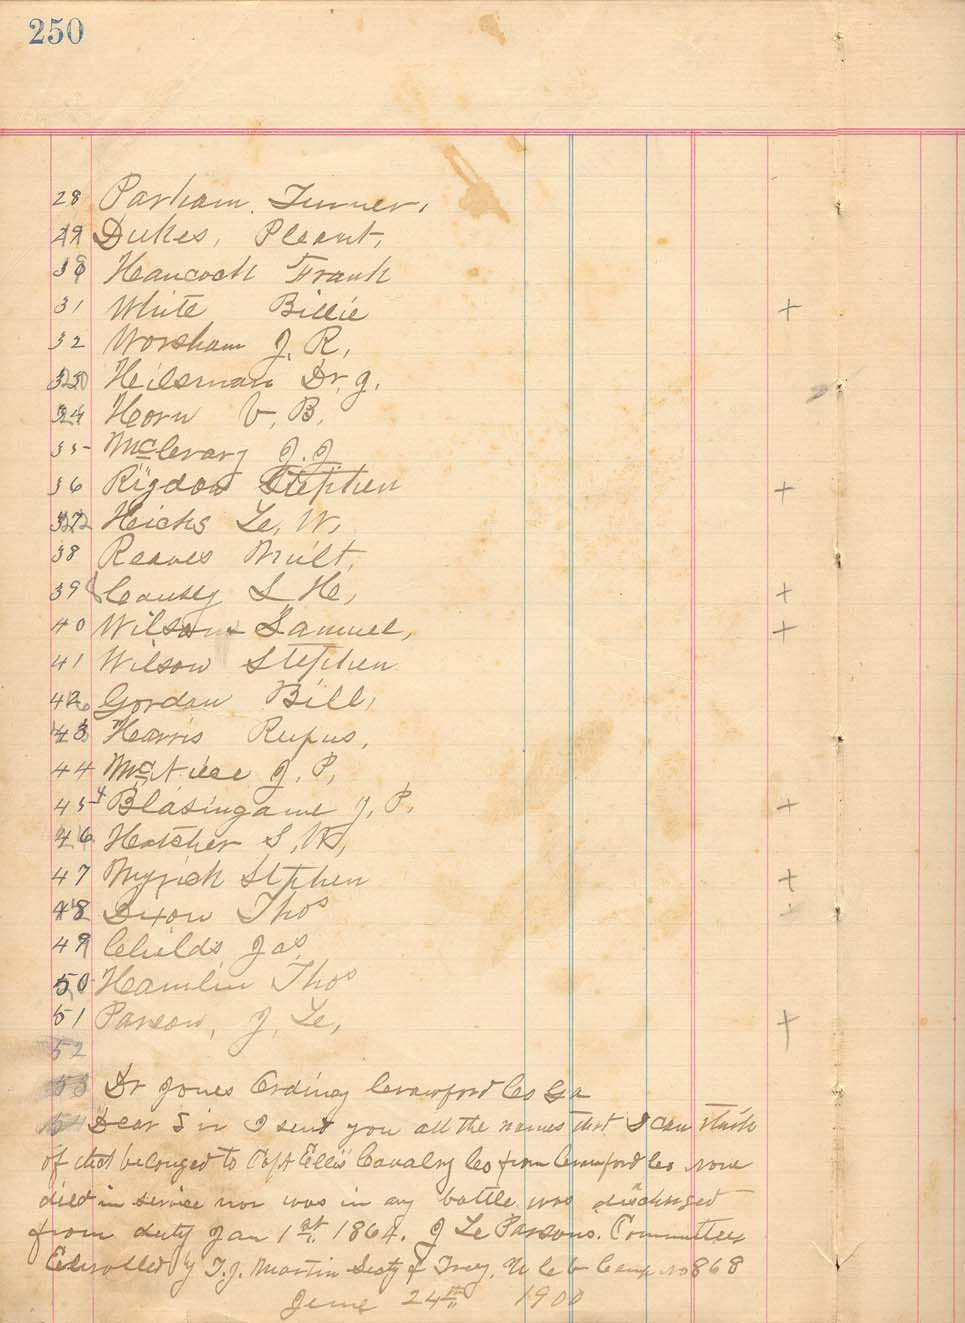 250
28 Parham Turner,
29 Dukes, Pleant,
30 Hancock Frank
31 White Billie +
32 Worsham J. R,
Heilsman Dr. g,
34 Horn V, B,
35 McCrary J. J
36 Rigdon Stephen +
37 Hicks Le, W,
38 Reaves Milt,
39 Causey S He, +
40 Wilson Samuel, +
41 Wilson Stephen
42 Gordan Bill,
43 Harris Rufus,
44 McNiece J, P,
45 Blasingame J, P, +
46 Hatcher S,
47 Myrick Stephen +
48 Dixon Thos +
49 Childs, Jas,
50 Hamlin Thos
51 Parson, J, Le, +
52
53 Dr Jones Ordinay Crawford Co Ga
54 Dear Sir I send you all the names that I can think
of that belonged to Capt Ellis Cavalry Co from Crawford Co none
died in service nor was in any battle was discharged
from duty Jan 1st. 1864. J Le Parsons. Committee
Enrolled by T. J. Martin Secty & Trey, U C V Camp No 868
June 24th 1900